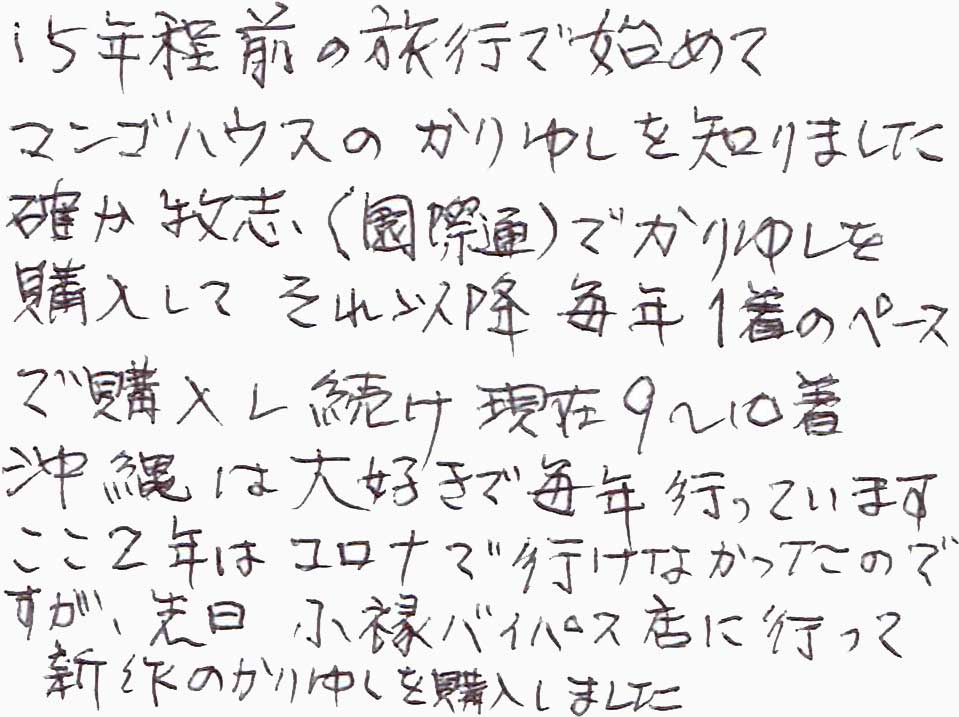 15年程前の旅行で始めて
マンゴハウスのかりゆしを知りました
確か牧志、(園際通)でかりゆしを
購入して それ以降 毎年 1着のペース
で購入し続け 現在9〜10着
沖縄は大好きで毎年行っています
ここ2年はコロナで行けなかったので
すが、先日 小禄バイパス店に行って
新作のかりゆしを購入しました